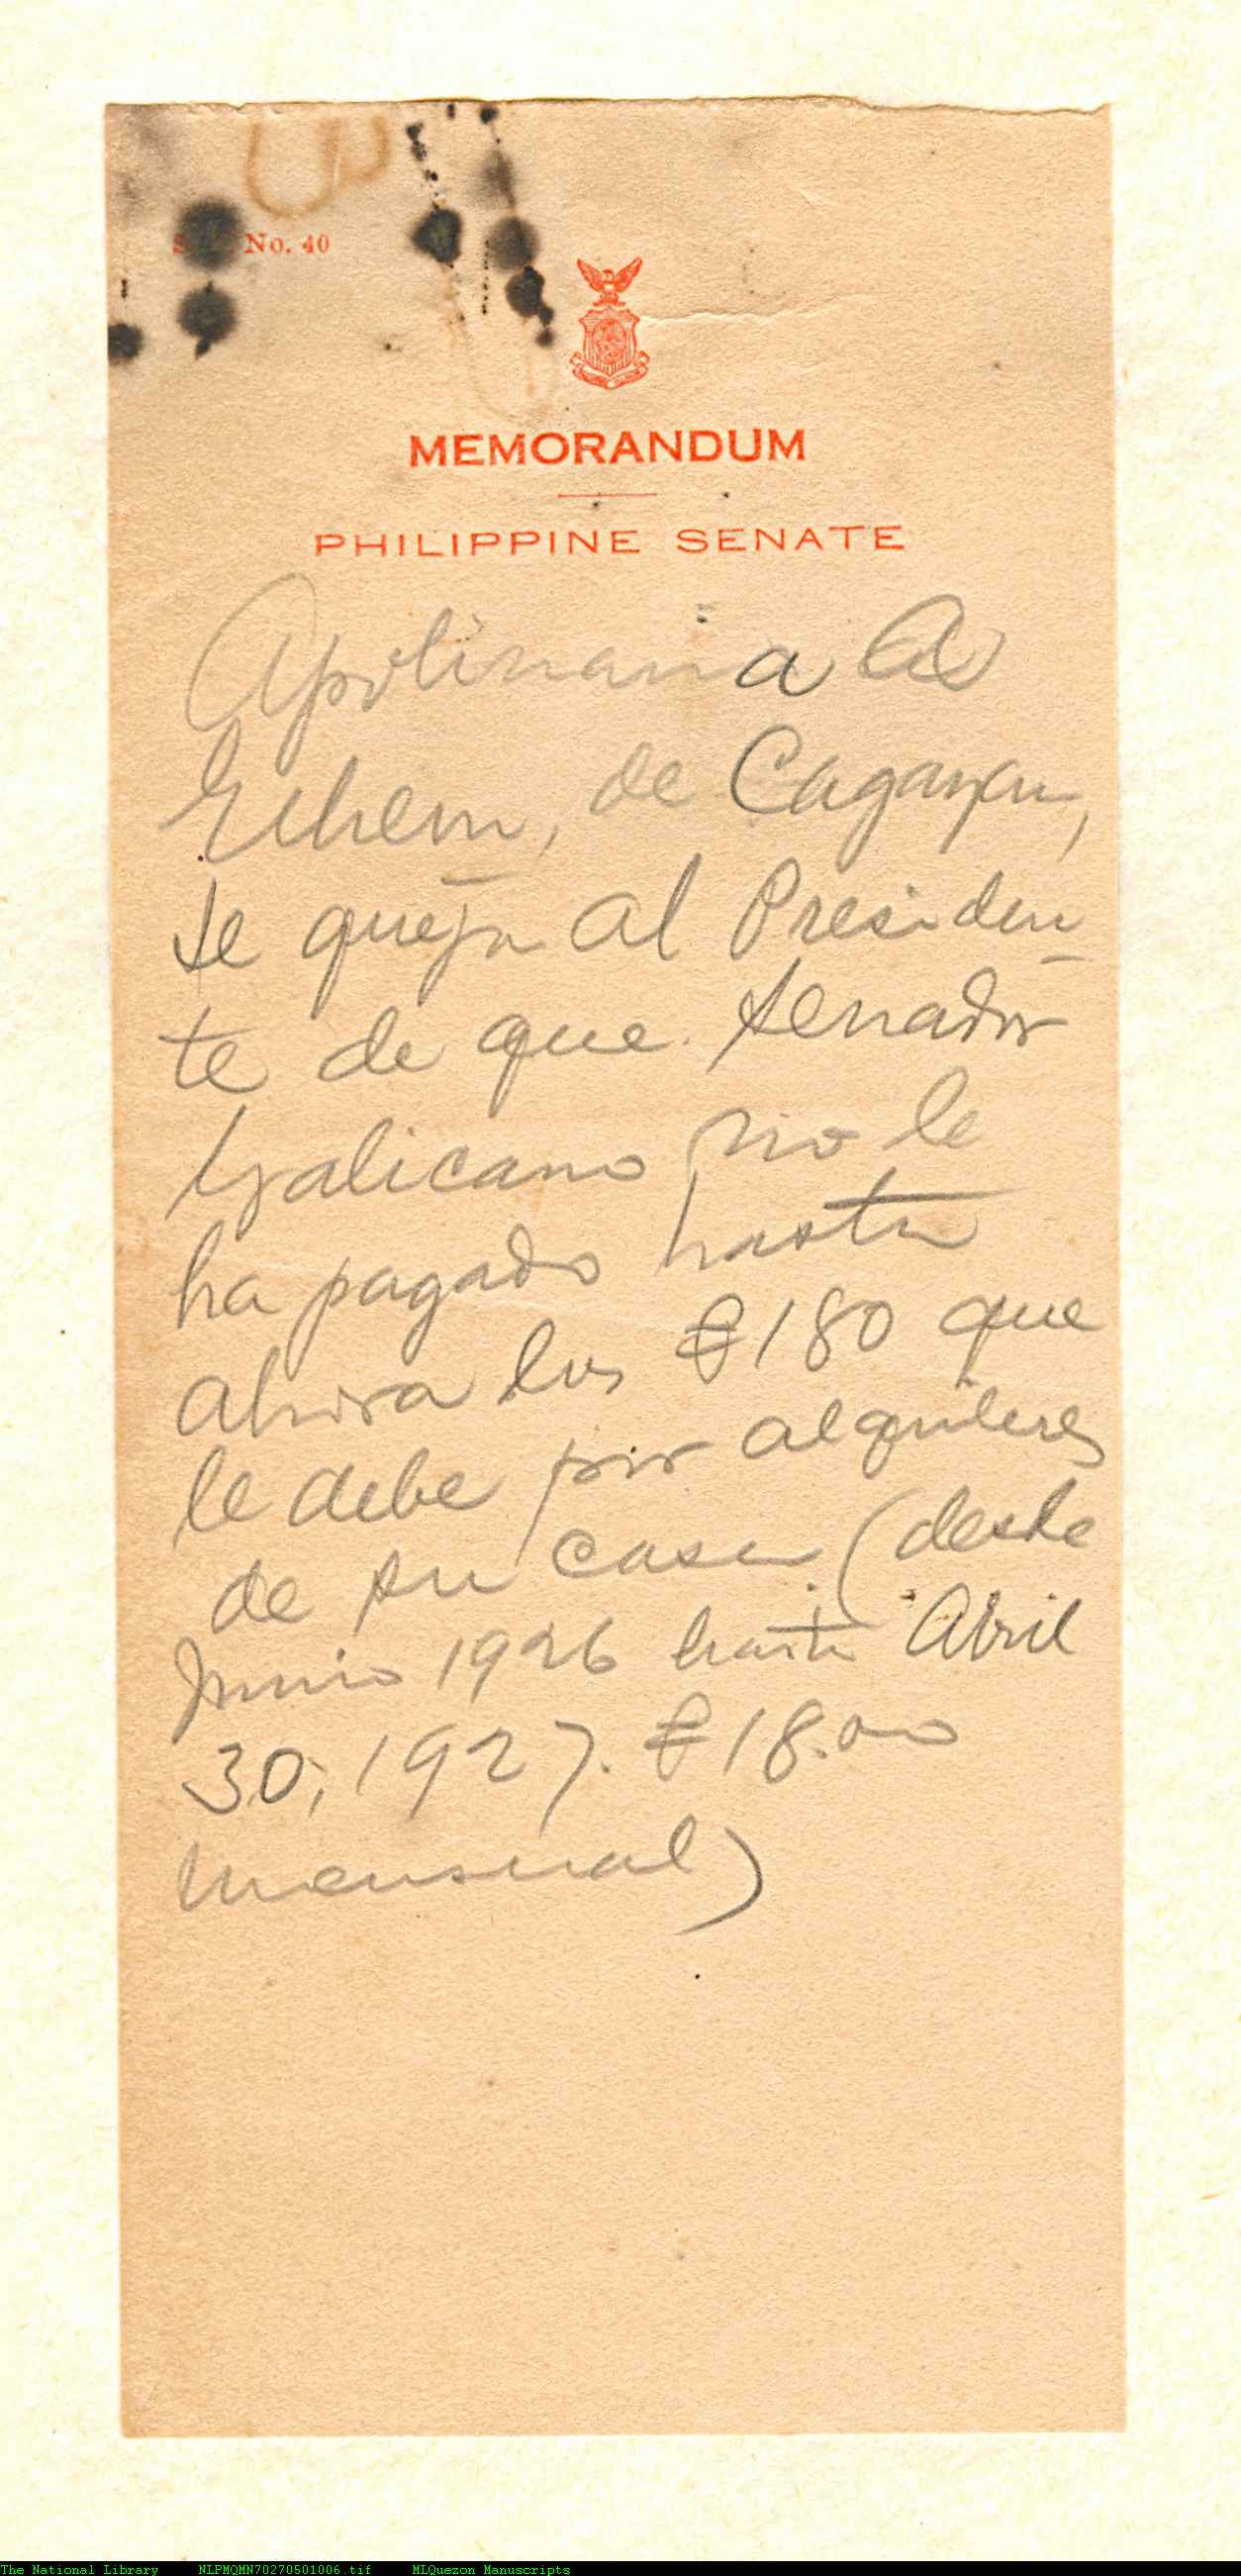 No. 40
MEMORANDUM
PHILIPPINE SENATE
Apolinaria A
de Cagayan,
se queja al Presiden
te de que Senador
Galicano no le
ha pagado hasta
ahora los ₱180 que
le debe por alquileres
de su casa. (desde
Junio 1926 hasta Abril
30, 1927. ₱18.00
mensual)
The National Library NLPMQMN70270501006.tif MLQuezon Manuscripts